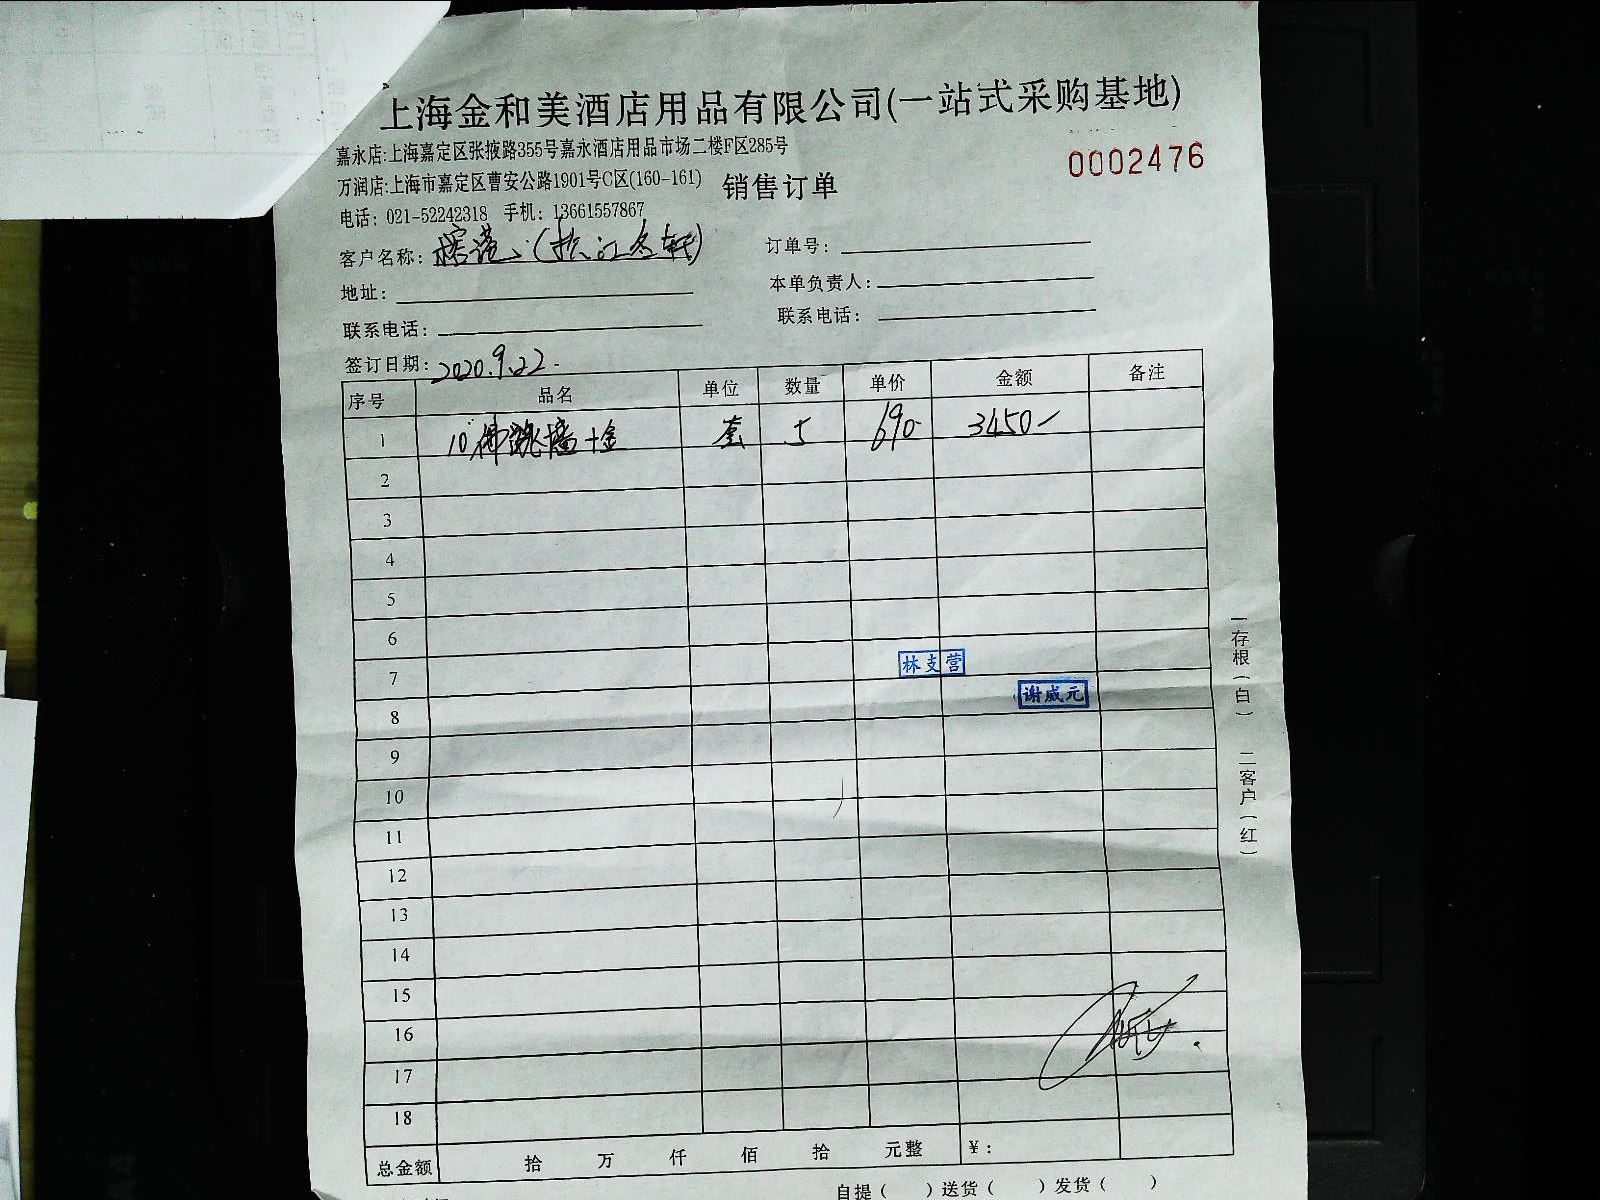 上海金和美酒店用品有限公司(一站式采购基地)
嘉永店:上海嘉定区张掖路355号嘉永酒店用品市场二楼F区285号
0002476
万润店:上海市嘉定区曹安公路1901号C区(160-161) 销售订单
电话: 021-52242318 手机: 13661557867
客户名称: 订单号:
地址: 本单负责人:
联系电话: 联系电话:
签订日期: 2020.9.22
序号 品名 单位 数量 单价 金额 备注
1 10佛跳墙 套 5 690 3450
2
3
4
5
6
7 林支营
8 谢威元
9
10
11
12
13
14
15
16
17
18
总金额 拾 万 仟 佰 拾 元整 ¥:
自提( )送货( )发货( )
一存根(白) 二客户(红)